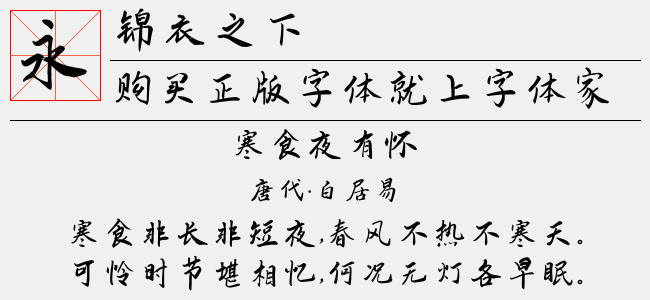 永
锦衣之下
购买正版字体就上字体家
寒食夜有怀
唐代·白居易
寒食非长非短夜,春风不热不寒天。
可怜时节堪相忆,何况无灯各早眠。